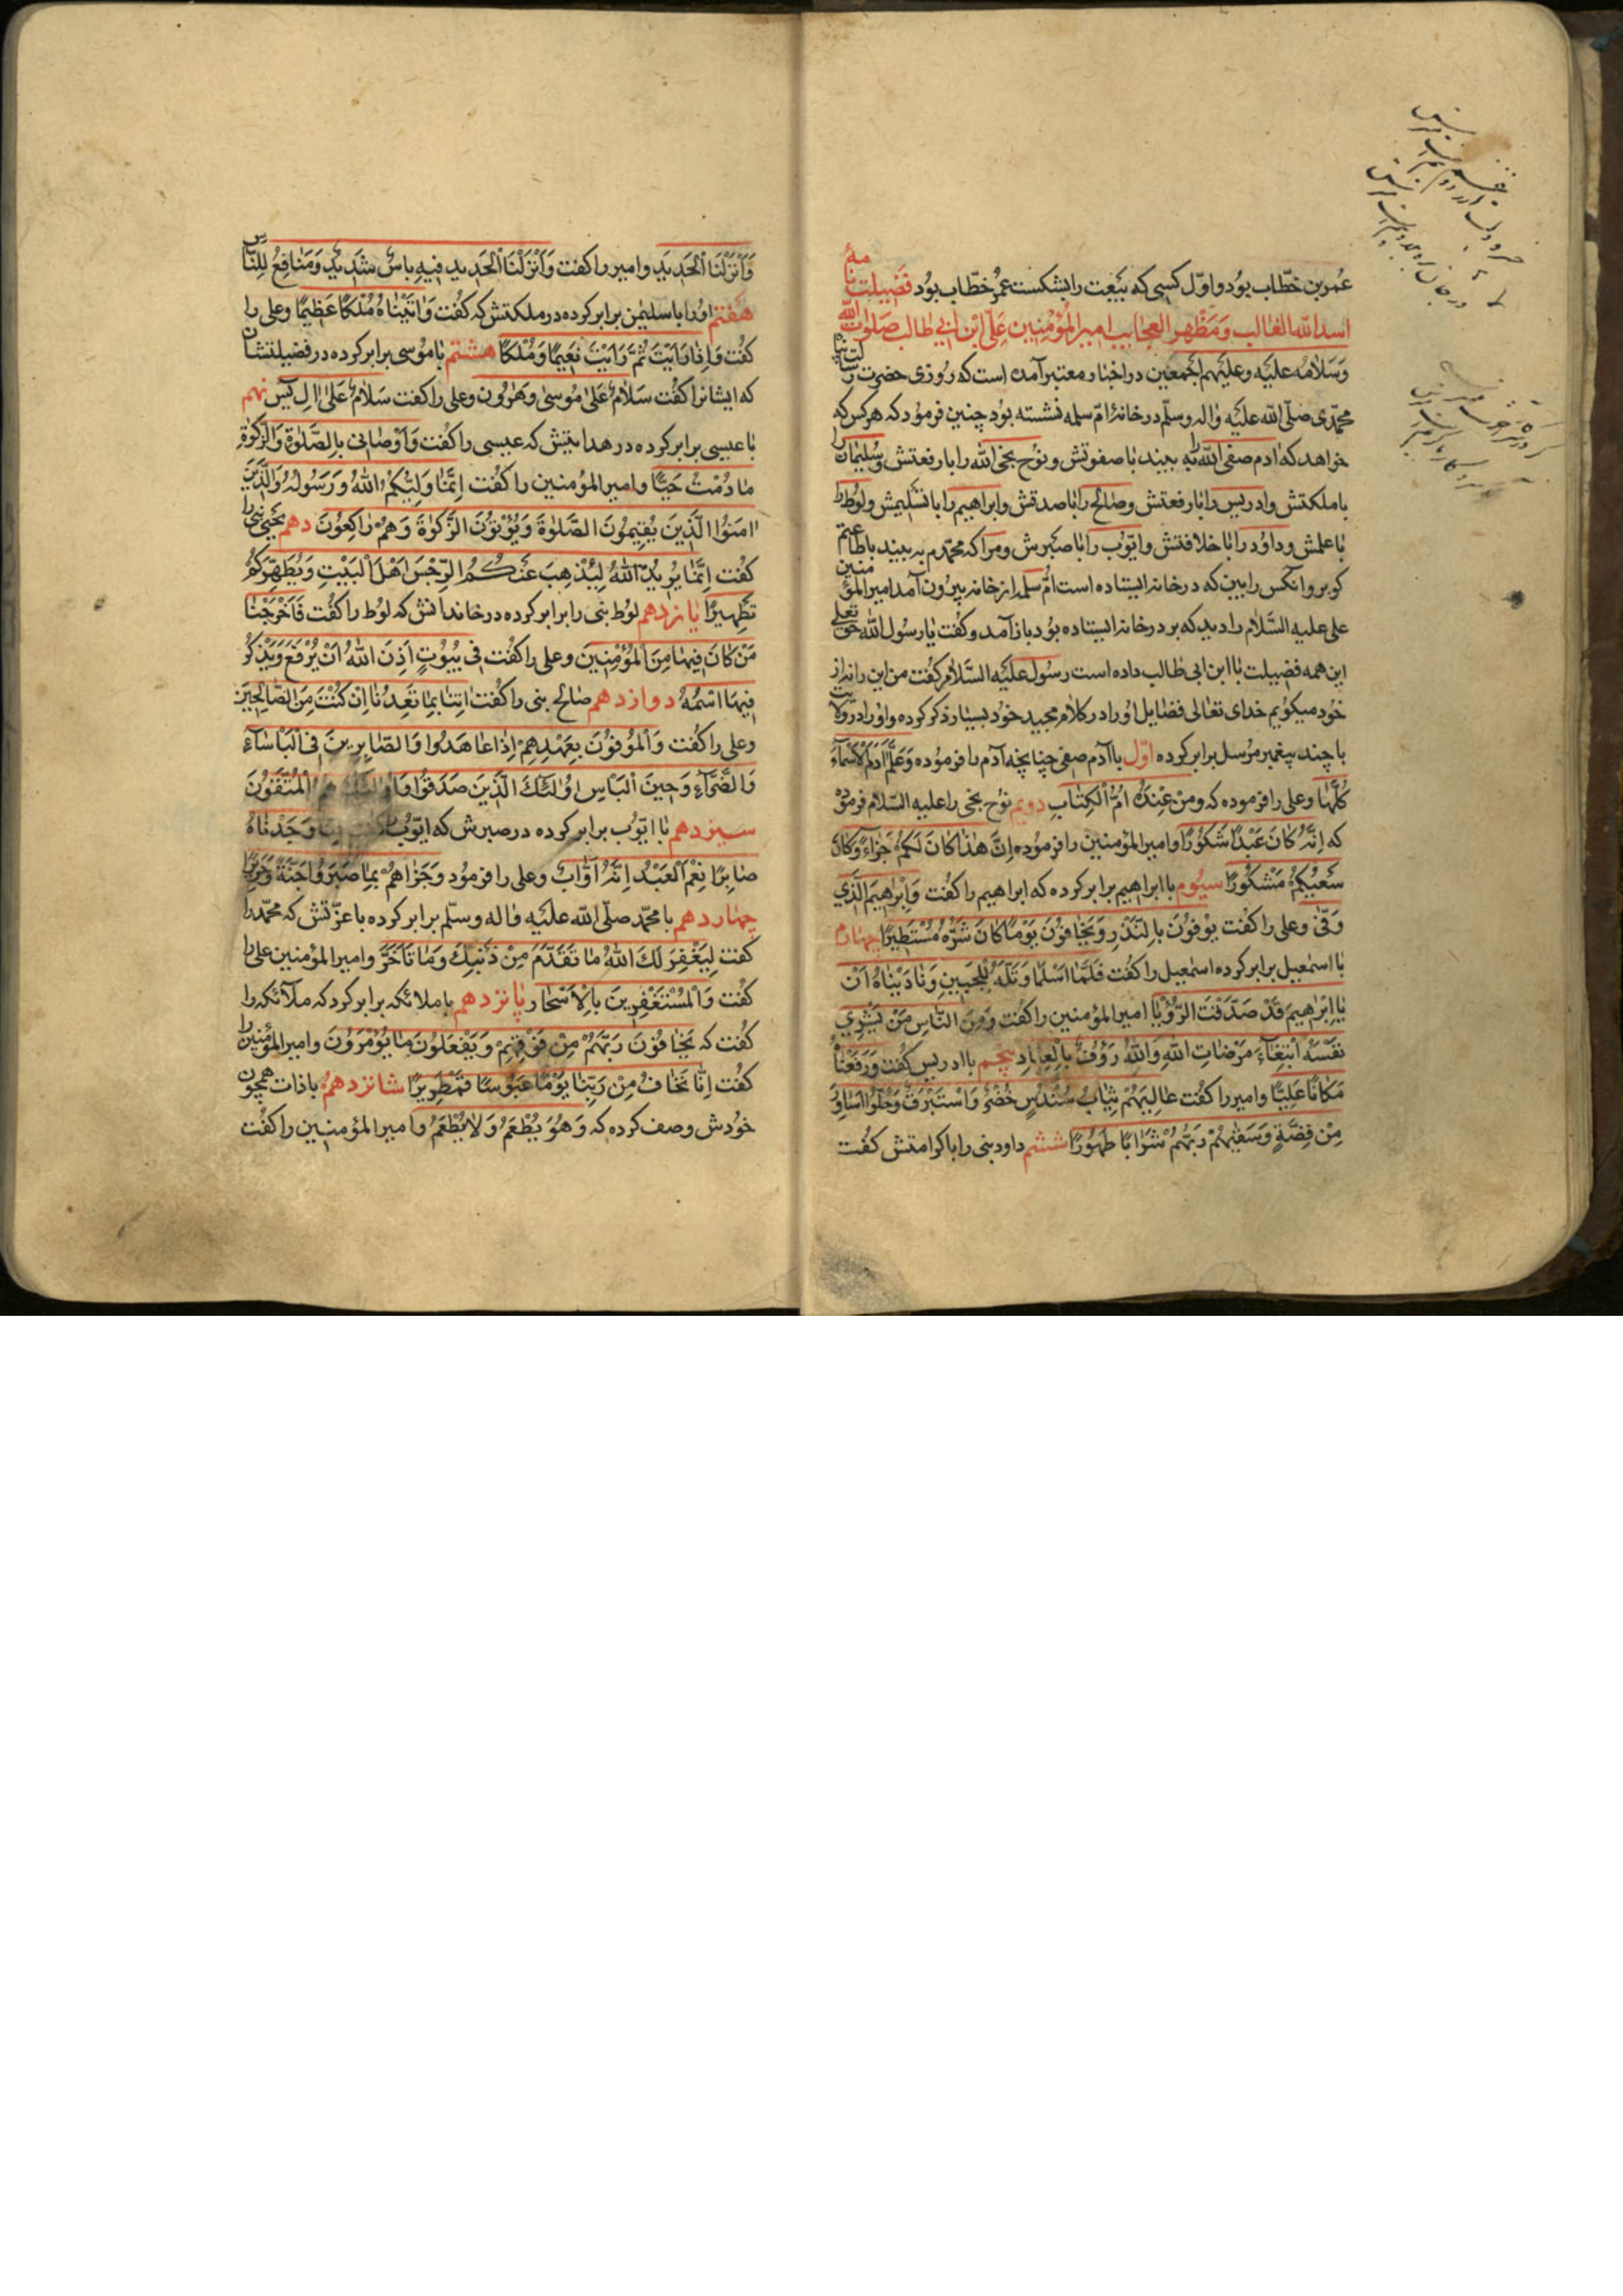 عُمر بن خطّاب بوُد و اوّل کسی که بَیعَت را بشکست عمر خطّاب بوُد فَضیلت نامهٔ
اسد الله الغالب وَ مَظهر العجایب امیر المؤمنین عَلّی ابن ابی طالب صَلوات الله
وَسَلامُه علیَه وعلیَهم اجمعین در اخبار معتبر آمده است که رُوزی حضرت رسالت پناه
محمّدی صلّی الله علیَه واله وسلّم در خانهٔ امّ سلمه نشسته بوُد چنین فرموُد که هرکس که
خواهد که ادم صفی الله را به بیند با صفوتش و نوُح نجی الله را با رفعتش وسُلیمان را
با ملکتش وادریس را با رفعتش وصالح را با صدقش وابراهیم را با تسلیمش ولوُط را
با علمش وداوُد را با خلافتش وایّوب را با صَبرش ومرا که محمّدم به بیند با طاعتم
کو برو انکس را ببین که در خانه ایستاده است امُّ سلمه از خانه بیرُون آمد امیر المؤمنین
علی علیه السَّلام را دید که بر در خانه ایستاده بوُد باز آمد و کفت یا رسوُل الله حق تعالی
این همه فضیلت با ابن ابی طالب داده است رسُول علیَه السَّلام کفت من این را نه از
خوُد میکوُیم خدای تعالی فضایل اوُ را در کلام مجید خوُد بسیار ذکر کرده واوُ را در ولایت
با چند پیغمبر مرُسل برابر کرده اوّل با آدم صفی چنانچه آدم را فرموُده وَعَلَّمَ آدَمَ الْاَسْمآءَ
کُلَّهٰا وعلی را فرموده که وَمنْ عِنْدَهُ امُّ اْلکِتٰابِ دویم نوُح نجی را علیه السّلام فرموُد
که اِنَّهُ کٰانَ عَبْدًا شَکوُرًا وامیر المؤمنین را فرموُده اِنَّ هٰذٰا کٰانَ لَکمُْ جَزٰاءً وَکٰانَ
سَعْیُکمُْ مَشْکوُرًا سیُوم با ابراهیم برابر کرده که ابراهیم را کفُت وَاِبْرٰاهیمَ الَّذی
وَفّیٰ وعلی را کفُت یوُفوُنَ بِالنَّذْرِ وَیَخٰافوُنَ یَوْمًا کٰانَ شَرُّهُ مُسْتَطیرًا چهٰارم
با اسمٰعیل برابر کرده اسمٰعیل را کفُت فَلَمّٰا اَسْلَمٰا وَتَلَّهُ لِلْجَبینِ وَنٰادَیْنٰاهُ اَنْ
یٰا اِبْرٰهیمَ قَدْ صَدَّقْتَ الرُّؤْیٰا امیر المؤمنین را کفت وَمِنَ النّٰاسِ مَنْ یَشْری
نَفْسَهُ ابْتِغٰآءَ مَرْضٰاتِ اللهِ وَاللهُ رَؤُفٌ بِالْعِبٰادِ پنجم با ادریس کفُت وَرَفَعْنٰاهُ
مَکٰانًا عَلِیًّا وامیر را کفُت عٰالِیَهُمْ ثِیٰابُ سُنْدُسٍ خُضْرٌ وَاسْتَبْرَقٌ وَحُلّوُا اَسٰاوِرَ
مِنْ فِضَّةٍ وَسَقٰیهُمْ رَبُّهُمْ شَرٰابًا طَهوُرًا ششم داود نبی را با کرامتش کفُت
وَاَنْزَلْنَا اْلحَدیدَ وامیر را کفت وَاَنْزَلْنَا اْلحَدید فیهِ بَاسٌ شَدیدٌ وَمَنٰافِعُ لِلنّٰاس
هَفتم اوُ را با سلیمٰن برابر کرده در ملکتش که کفُت وَاتَیْنٰاهُ مُلْکًا عَظیمًا وعلی را
کفُت وَاِذٰا رَاَیْتَ ثَمَّ رَاَیْتَ نَعیمًا وَمُلْکًا هشتم با موُسی برابر کرده در فضیلتشان
که ایشانرا کفُت سَلامٌ عَلیٰ مُوسیٰ وَهٰرُون وعلی را کفت سَلامٌ عَلیٰ الِ یٰس نهم
با عیسی برابر کرده در هدایتش که عیسی را کفُت وَاَوْصٰانی بِالصَّلوٰةِ وَالزَّکوٰةِ
مٰا دُمْتُ حَیًّا وامیر المؤمنین را کفُت اِنَّمٰا وَلِیُّکُمُ اللهُ وَرَسُولُهُ وَالَّذینَ
امَنوُا الَّذینَ یُقیمُونَ الصَّلوٰةَ وَیُؤْتوُنَ الزَّکوٰةَ وَهُمْ رٰاکِعُونَ دهم یحیی نبی را
کفُت اِنَّمٰا یُریدُ اللهُ لِیُذْهِبَ عَنْکُمُ الرِّجْسَ اَهْلَ اْلبَیْتِ وَیُطَهِّرَکُمْ
تَطْهیرًا یازدهم لوُط نبی را برابر کرده در خاندانش که لوُط را کفُت فَاَخْرَجْنٰا
مَنْ کٰانَ فیهٰا مِنَ اْلمؤُمِنینَ وعلی را کفُت فی بُیُوتٍ اَذِنَ اللهُ اَنْ یُرْفَعَ وَیُذْکَرَ
فیهَا اسْمُهُ دوازدهم صٰالح نبی را کفُت اتِنٰا بِمٰا تَعِدُنٰا اِنْ کُنْتَ مِنَ الصّٰالِحینَ
وعلی را کفُت وَاْلمُوفوُنَ بِعَهْدِهِمْ اِذٰا عٰاهَدوُا وَالصّٰابِرینَ فِی اْلبَاسٰآءِ
وَالضَّرّٰآءِ وَحینَ اْلبَاْسِ اوُلئکَ الَّذینَ صَدَقوُا وَاوُلئکَ هُمُ اْلمُتَّقوُنَ
سیزدهم با ایّوُب برابر کرده در صبرش که ایّوُب وَجَدْنٰاهُ
صٰابِرًا نِعْمَ اْلعَبْدُ اِنَّهُ اَوّٰابٌ وعلی را فرموُد وَجَزٰاهُمْ بِمٰا صَبَروُا جَنَّةً وَحَریرًا
چهٰاردهم با محمّد صلّی الله علیَه واله وسلّم برابر کرده با عزّتش که محمّد را
کفت لِیَغْفِرَ لَکَ اللهُ مٰا تَقَدَّمَ مِنْ ذَنْبِکَ وَمٰا تَاَخَّرَ وامیر المؤمنین علی را
کفُت وَاْلمُسْتَغْفِرینَ بِالْاَسْحٰار پٰانزدهم با ملائکه برابر کرد که ملآئکه را
کفُت که یَخٰافوُنَ رَبَّهُمْ مِنْ فَوْقِهِمْ وَیَفْعَلوُنَ مٰا یُؤْمَروُنَ وامیر المؤمنین را
کفُت اِنّٰا نَخٰافُ مِنْ رَبِّنٰا یَوْمًا عَبوُسًا قَمْطَریرًا شانزدهم با ذات همچون
خوُدش وصف کرده که وَهُوَ یُطْعِمُ وَلٰا یُطْعَمُ وامیر المؤمنین را کفُت